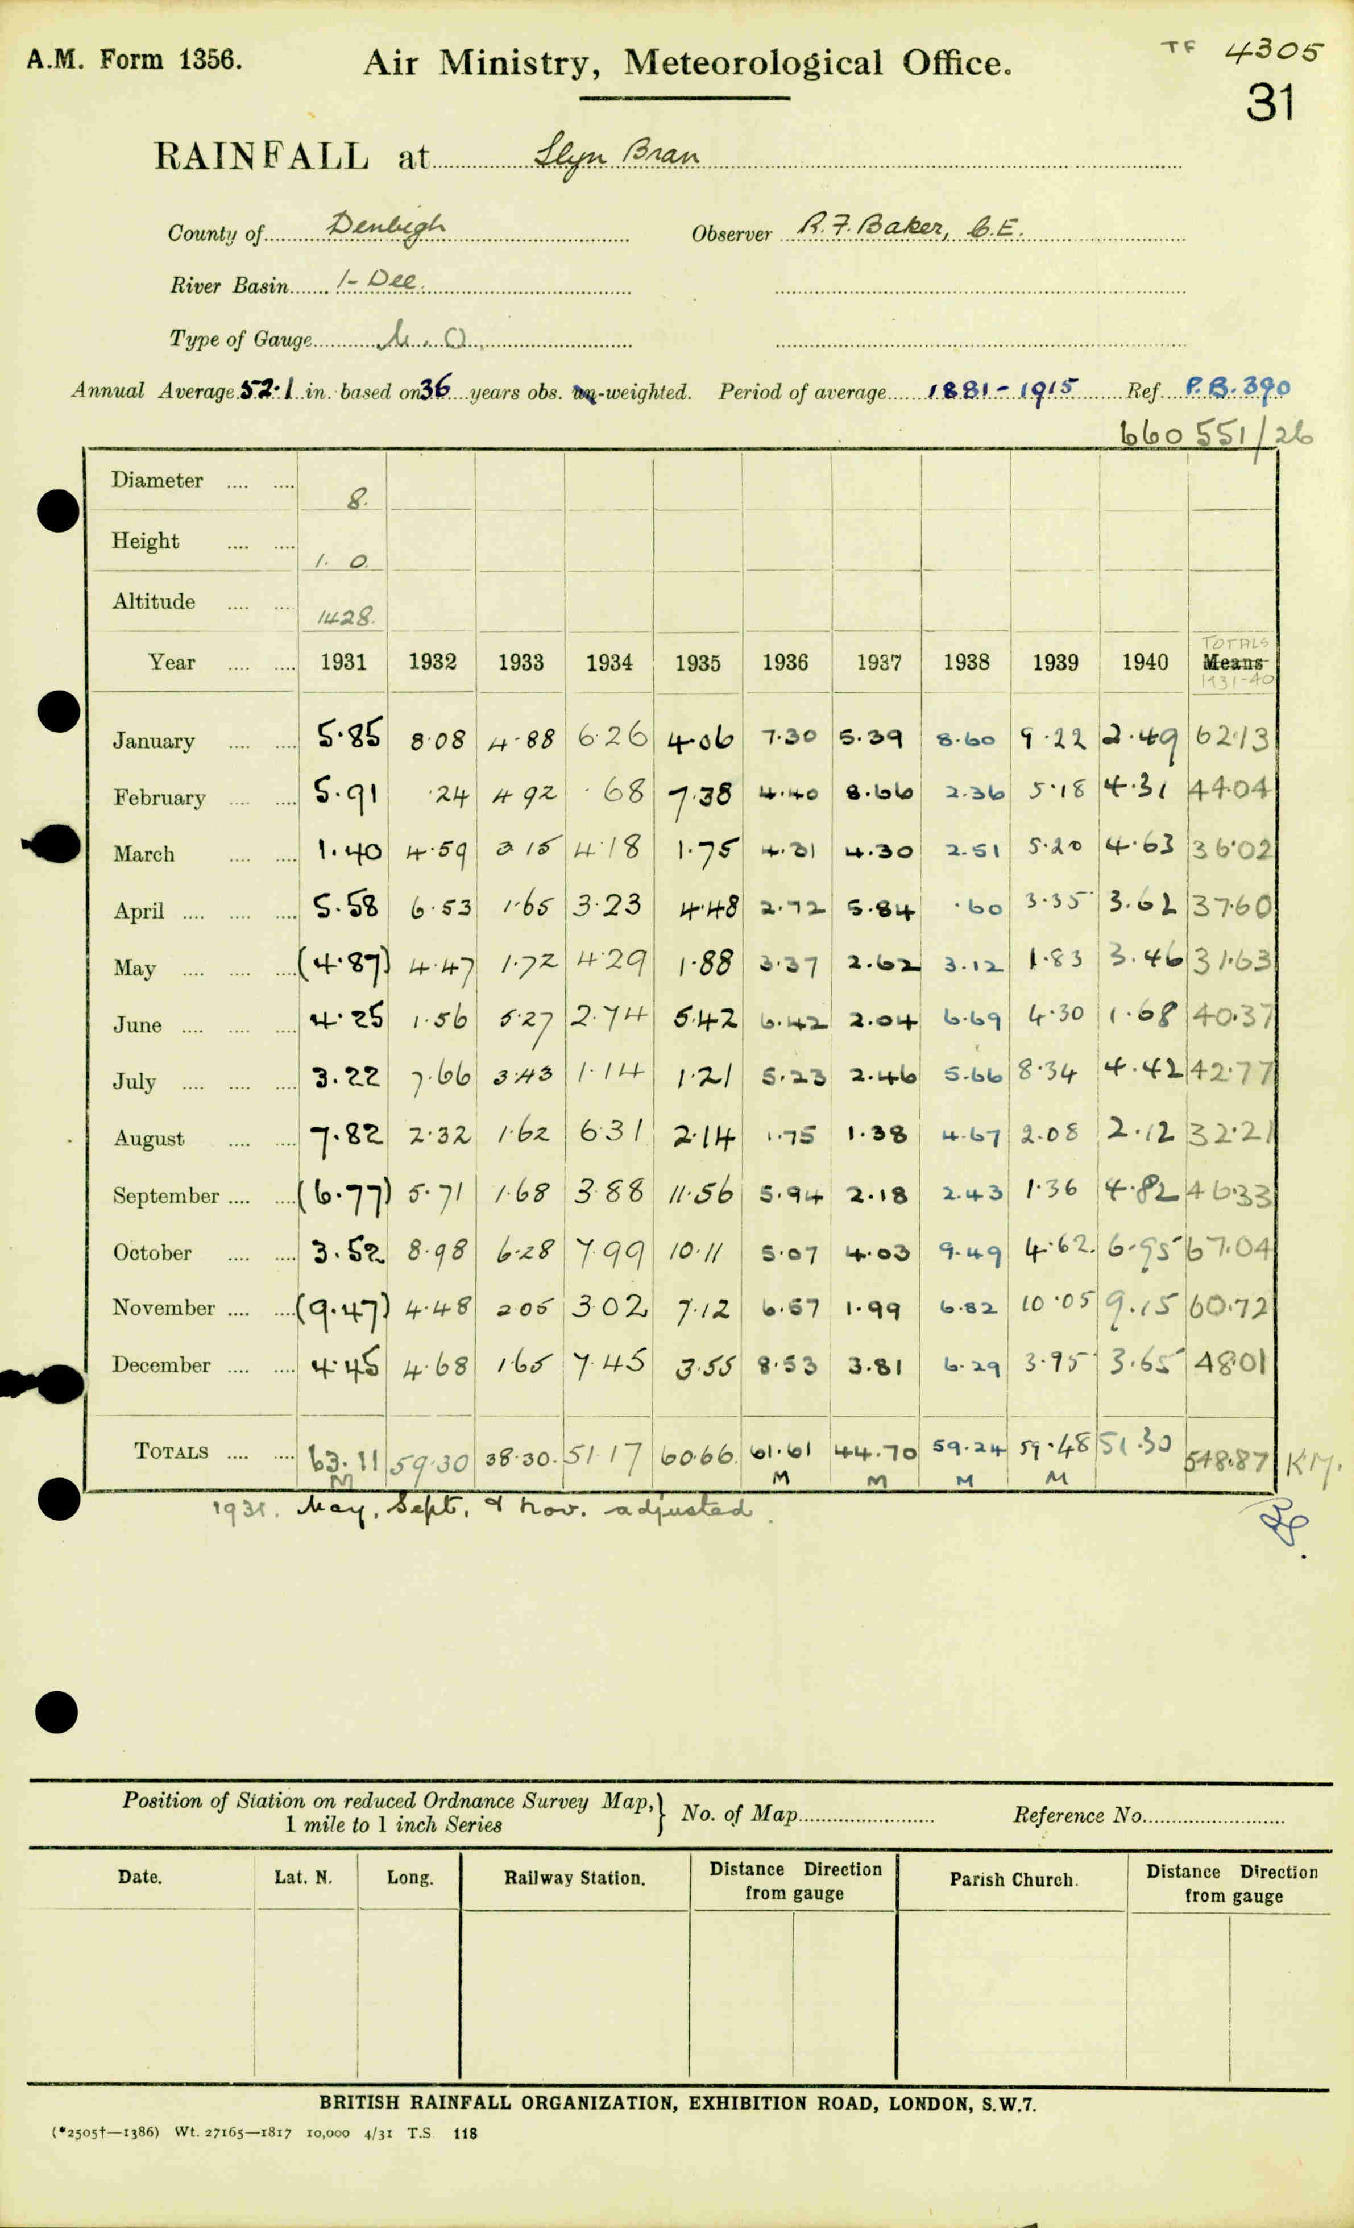 A.M. Form 1356.
Air Ministry, Meteorological Office.
TF 4305
31
RAINFALL at Llyn Bran
County of Denbigh Observer R.F. Baker, C.E.
River Basin 1- Dee.
Type of Gauge M.O.
Annual Average 52.1 in. based on 36 years obs. un-weighted. Period of average 1881-1915 Ref. P.B. 390
660 551/26
Diameter .... .... 8.
Height .... .... 1. 0.
Altitude .... .... 1428.
Year .... .... 1931 1932 1933 1934 1935 1936 1937 1938 1939 1940 TOTALS Means 1931-40
January .... .... 5.85 8.08 4.88 6.26 4.06 7.30 5.39 8.60 9.22 2.49 62.13
February .... .... 5.91 .24 4.92 .68 7.38 4.40 8.66 2.36 5.18 4.31 44.04
March .... .... 1.40 4.59 3.15 4.18 1.75 4.31 4.30 2.51 5.20 4.63 36.02
April .... .... .... 5.58 6.53 1.65 3.23 4.48 2.72 5.84 .60 3.35 3.62 37.60
May .... .... .... (4.87) 4.47 1.72 4.29 1.88 3.37 2.62 3.12 1.83 3.46 31.63
June .... .... .... 4.25 1.56 5.27 2.74 5.42 6.42 2.04 6.69 4.30 1.68 40.37
July .... .... .... 3.22 7.66 3.43 1.14 1.21 5.23 2.46 5.66 8.34 4.42 42.77
August .... .... 7.82 2.32 1.62 6.31 2.14 1.75 1.38 4.67 2.08 2.12 32.21
September .... .... (6.77) 5.71 1.68 3.88 11.56 5.94 2.18 2.43 1.36 4.82 46.33
October .... .... 3.52 8.98 6.28 7.99 10.11 5.07 4.03 9.49 4.62 6.95 67.04
November .... .... (9.47) 4.48 2.05 3.02 7.12 6.57 1.99 6.82 10.05 9.15 60.72
December .... .... 4.45 4.68 1.65 7.45 3.55 8.53 3.81 6.29 3.95 3.65 48.01
TOTALS .... .... 63.11 59.30 38.30 51.17 60.66 61.61 44.70 59.24 59.48 51.30 548.87 KM.
M M M M M
1931. May, Sept, & Nov. adjusted.
Position of Station on reduced Ordnance Survey Map,} No. of Map Reference No.
1 mile to 1 inch Series
Date. Lat. N. Long. Railway Station. Distance Direction from gauge Parish Church. Distance Direction from gauge
BRITISH RAINFALL ORGANIZATION, EXHIBITION ROAD, LONDON, S.W.7.
(*2505†—1386) Wt. 27165—1817 10,000 4/31 T.S. 118